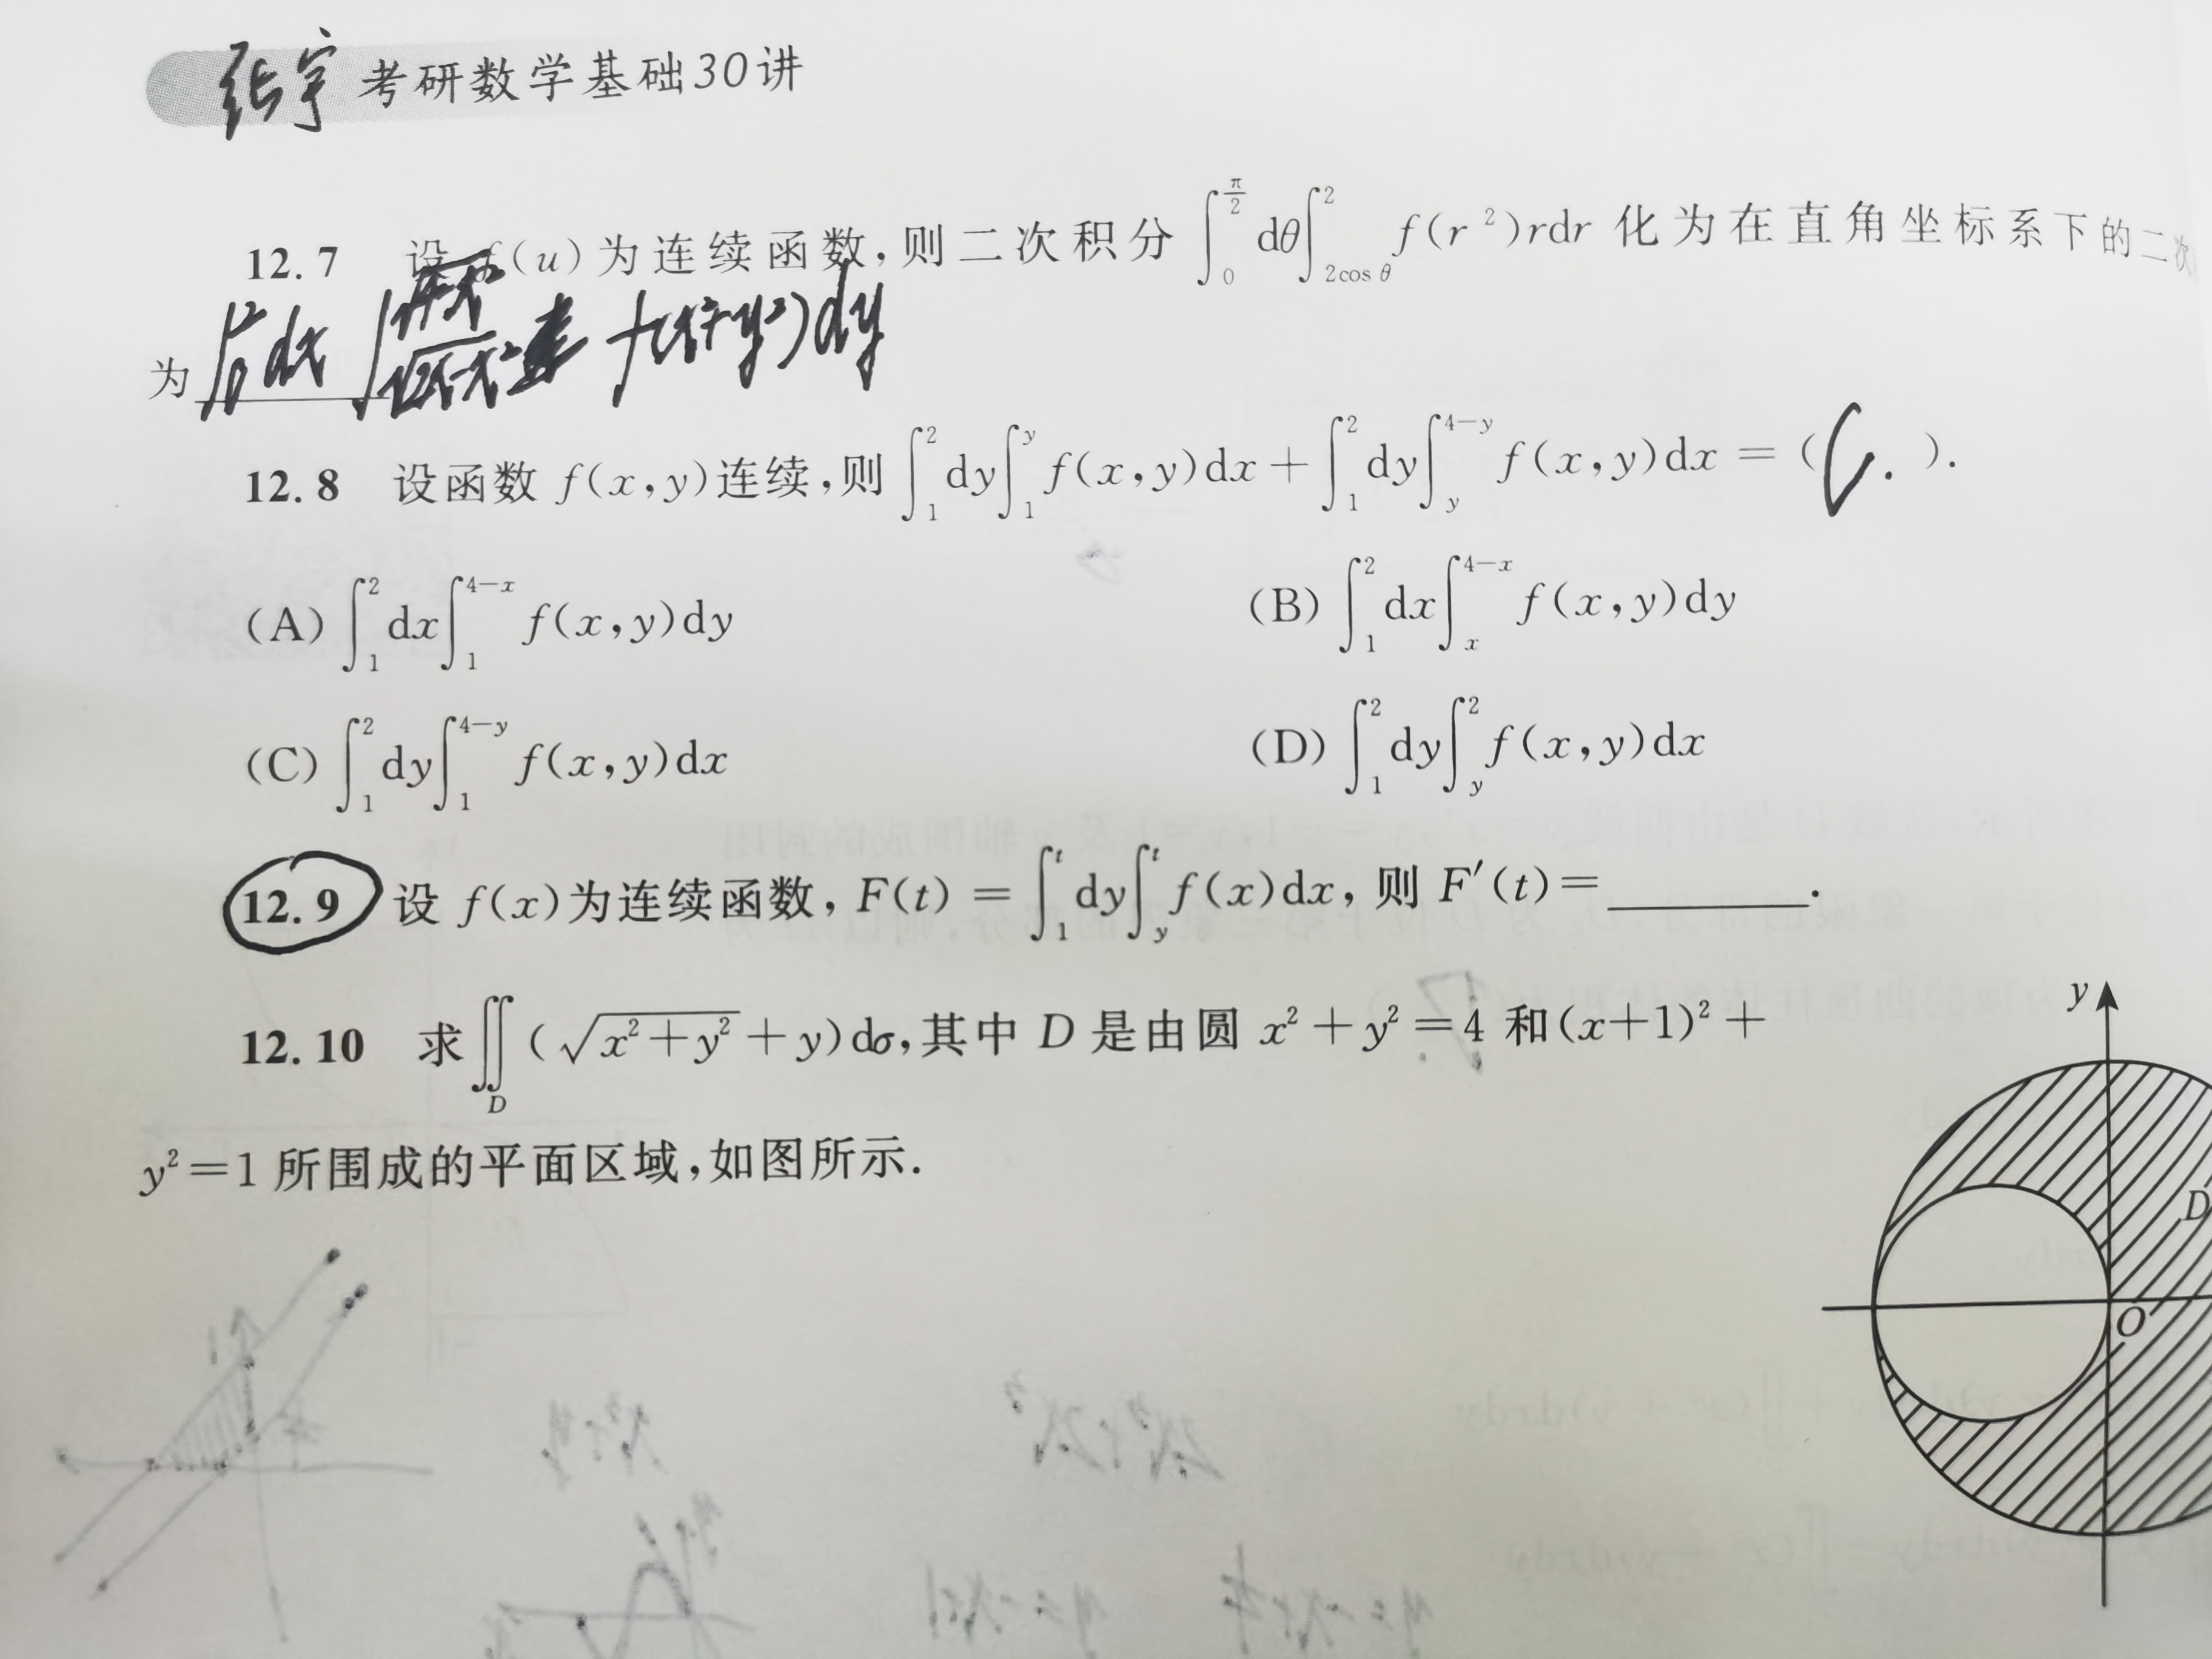 张宇 考研数学基础30讲
12.7 设 f(u)为连续函数,则二次积分 ∫_0^{π/2} dθ∫_{2cos θ}^2 f(r²)rdr 化为在直角坐标系下的二次
为 ∫_0^2 dx ∫_{√(2x-x²)}^{√(4-x²)} f(x²+y²)dy
12.8 设函数 f(x,y)连续,则 ∫_1^2 dy∫_1^y f(x,y)dx + ∫_1^2 dy∫_y^{4-y} f(x,y)dx = ( C. ).
(A) ∫_1^2 dx∫_1^{4-x} f(x,y)dy (B) ∫_1^2 dx∫_x^{4-x} f(x,y)dy
(C) ∫_1^2 dy∫_1^{4-y} f(x,y)dx (D) ∫_1^2 dy∫_y^2 f(x,y)dx
12.9 设 f(x)为连续函数, F(t) = ∫_1^t dy∫_y^t f(x)dx, 则 F′(t)=________.
12.10 求∬_D (√(x²+y²)+y)dσ,其中 D 是由圆 x²+y²=4 和(x+1)²+
y²=1 所围成的平面区域,如图所示.
y
D
O